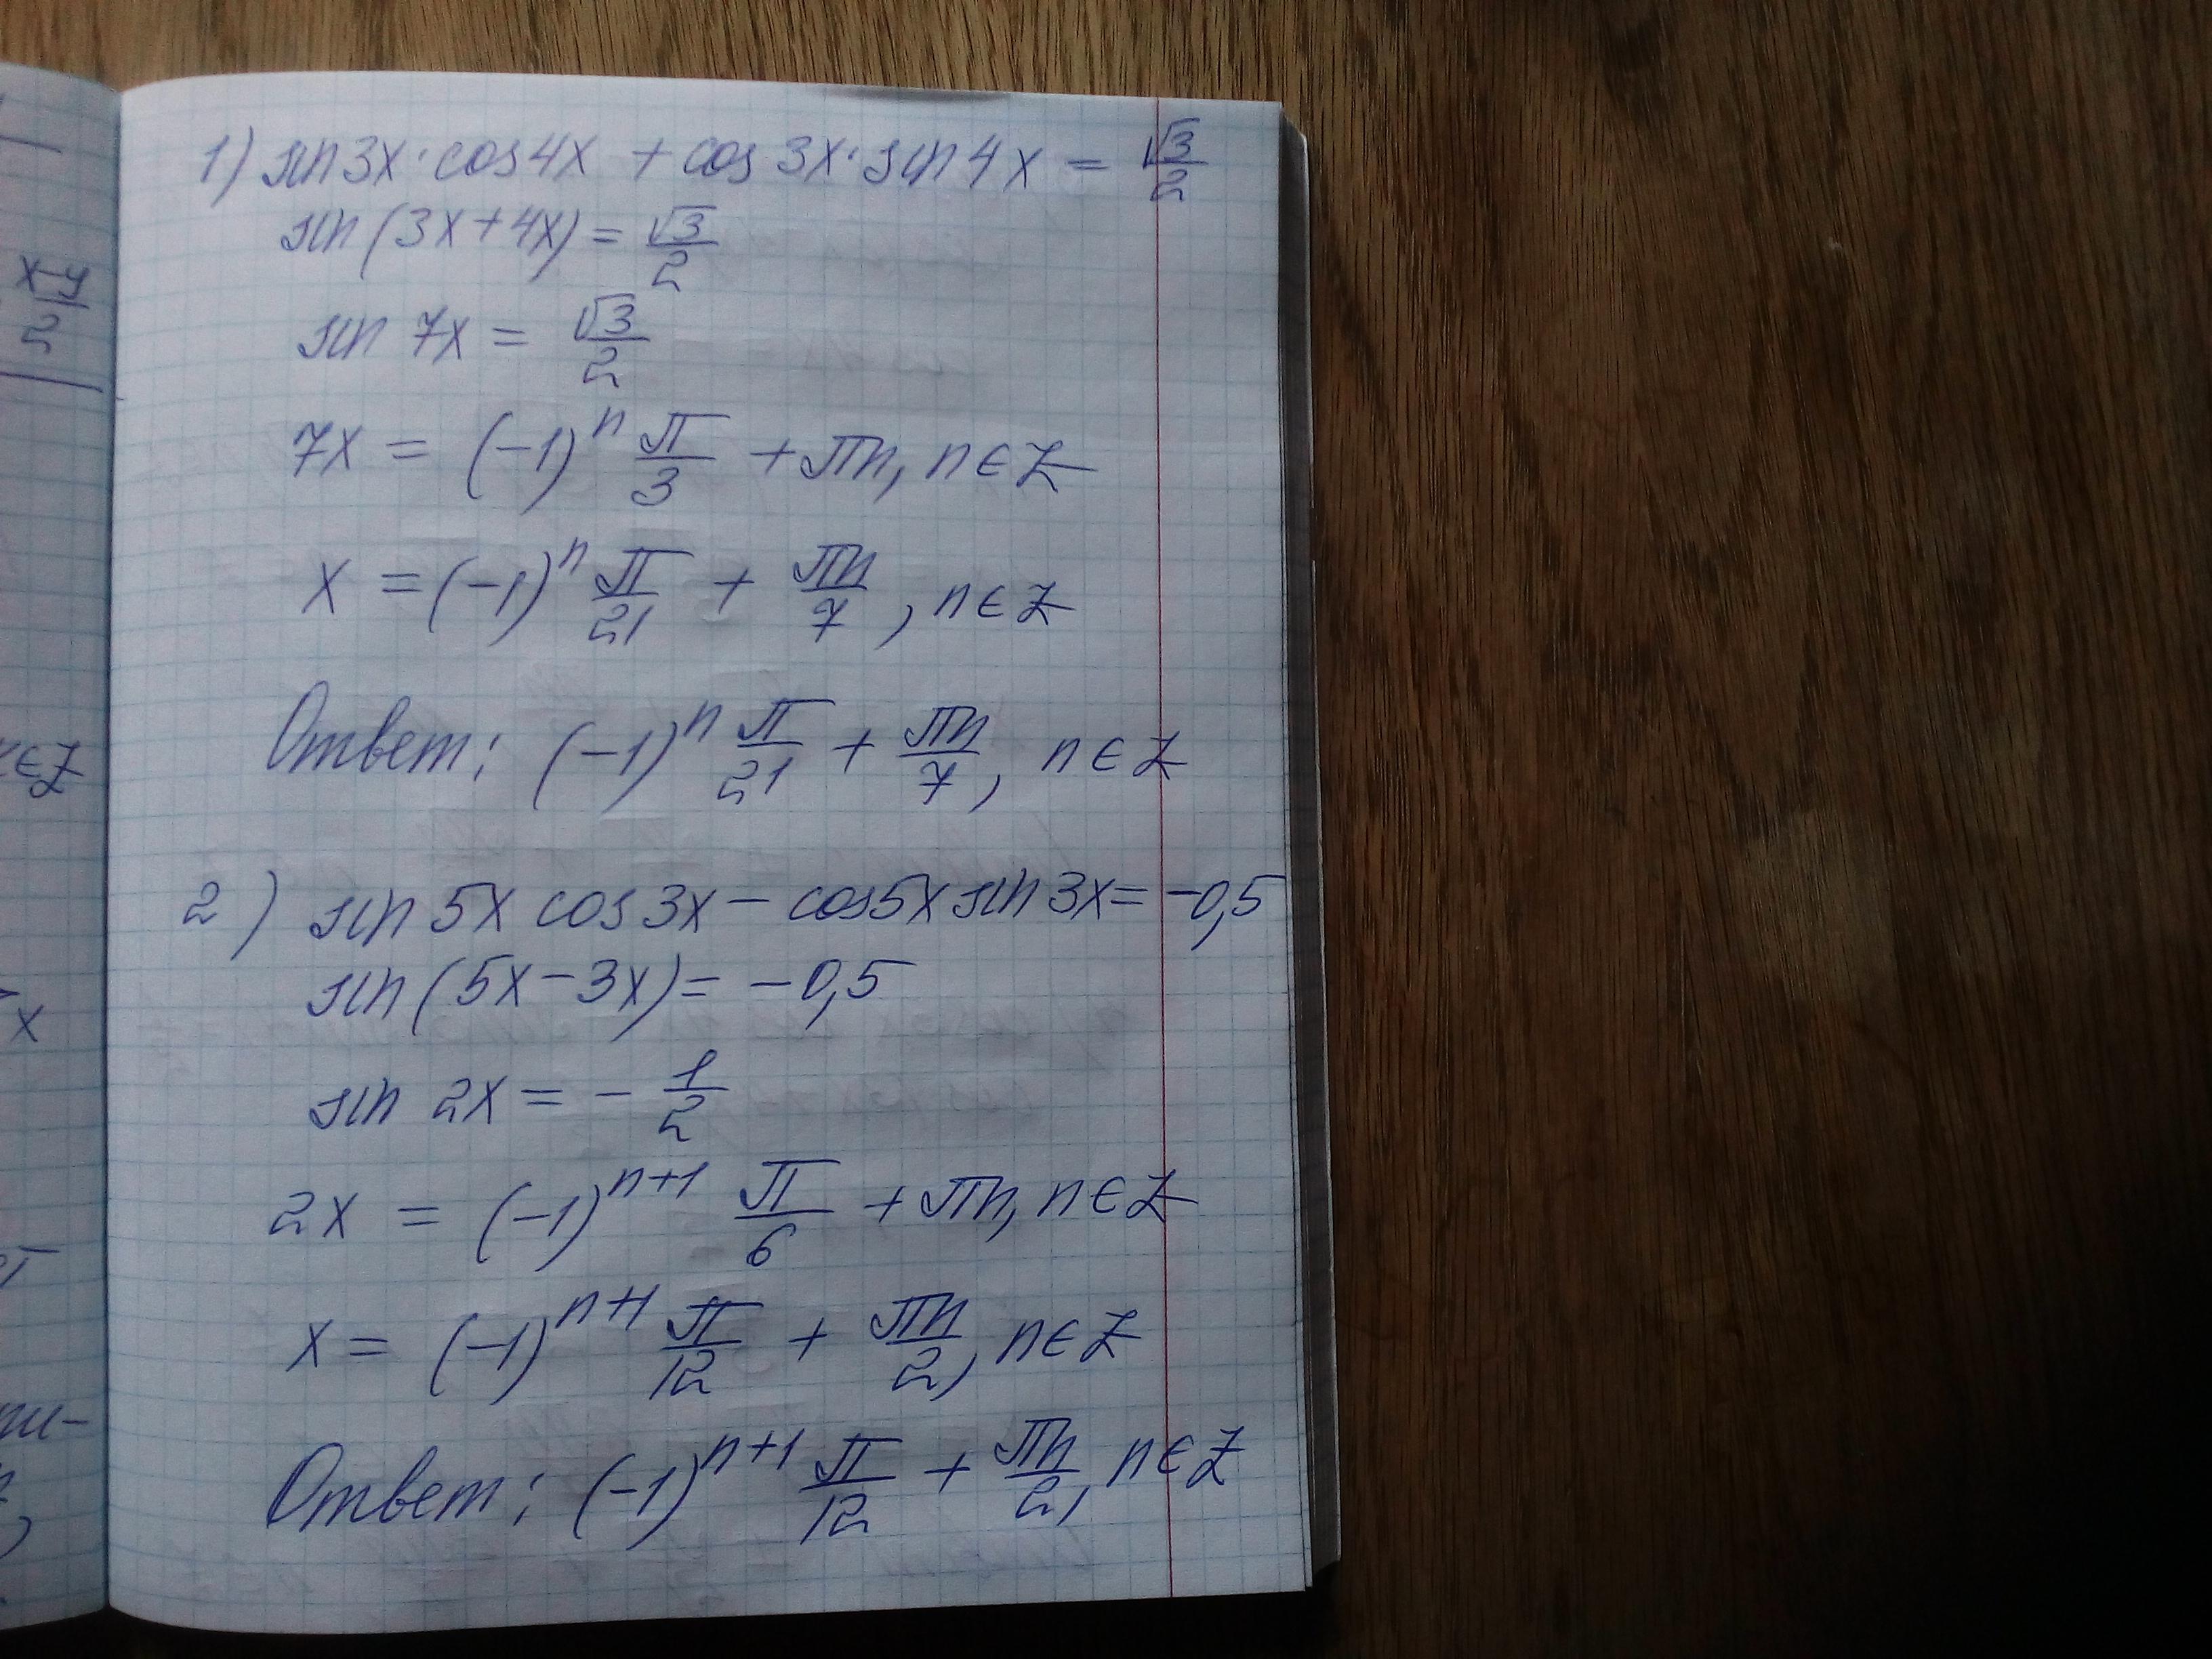 x-y
2
x∈Z
x
1) sin3x·cos4x + cos3x·sin4x = √3/2
sin(3x+4x) = √3/2
sin 7x = √3/2
7x = (-1)ⁿ π/3 + πn, n∈Z
x = (-1)ⁿ π/21 + πn/7, n∈Z
Ответ: (-1)ⁿ π/21 + πn/7, n∈Z
2) sin5x cos3x - cos5x sin3x = -0,5
sin(5x-3x) = -0,5
sin 2x = - 1/2
2x = (-1)ⁿ⁺¹ π/6 + πn, n∈Z
x = (-1)ⁿ⁺¹ π/12 + πn/2, n∈Z
Ответ: (-1)ⁿ⁺¹ π/12 + πn/2, n∈Z